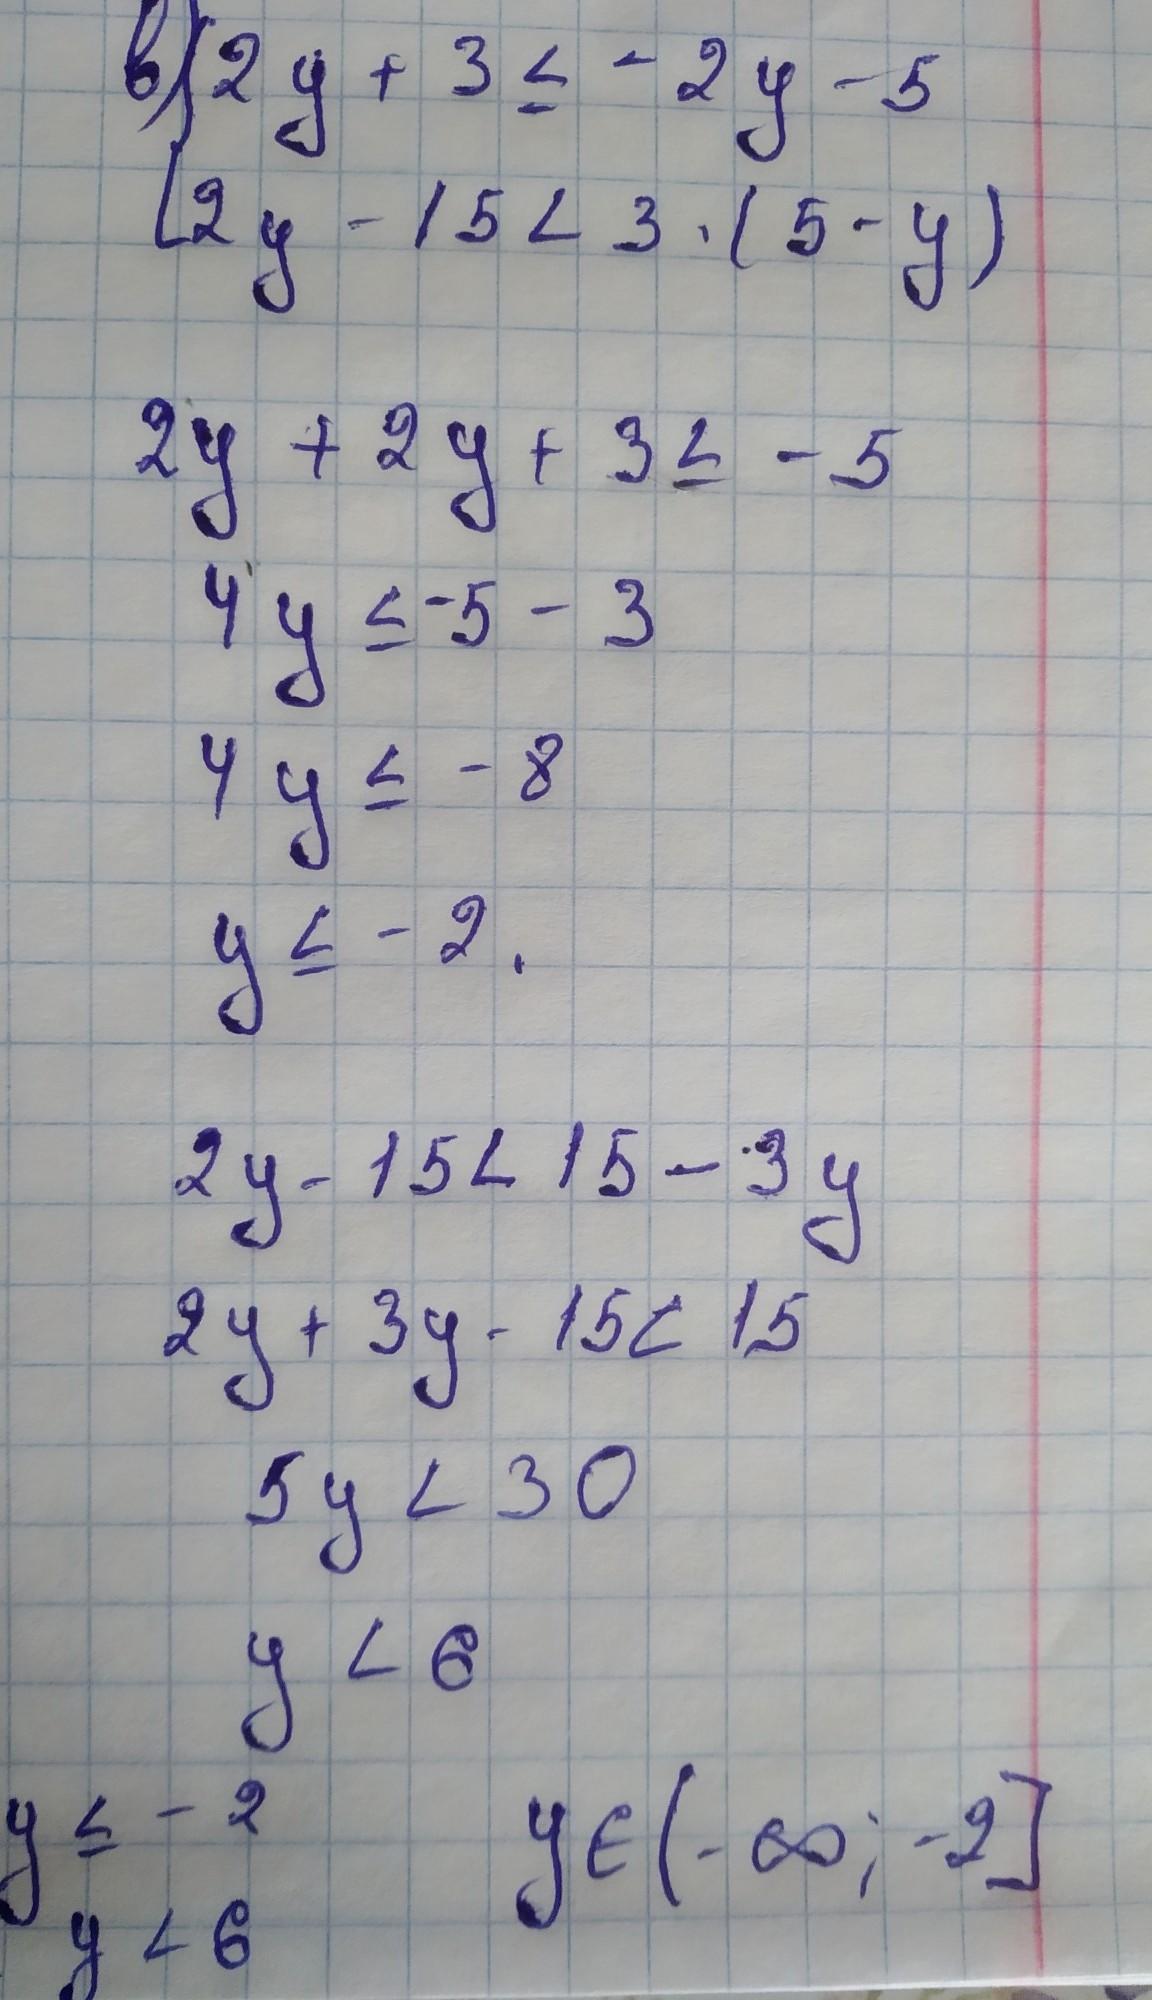 в) { 2y + 3 ≤ - 2y - 5
2y - 15 < 3 · ( 5 - y )
2y + 2y + 3 ≤ - 5
4y ≤ -5 - 3
4y ≤ - 8
y ≤ - 2 .
2y - 15 < 15 - 3y
2y + 3y - 15 < 15
5y < 30
y < 6
y ≤ - 2 y ∈ (- ∞; -2]
y < 6